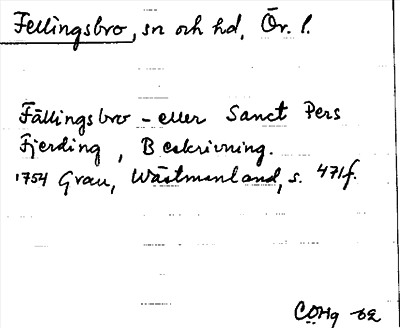 Fellingsbro, sn och hd, Ör. l.
Fällingsbro - eller Sanct Pers
Fjerding, Beskrivning.
1754 Grau, Wästmanland, s. 471f.
COHg -62